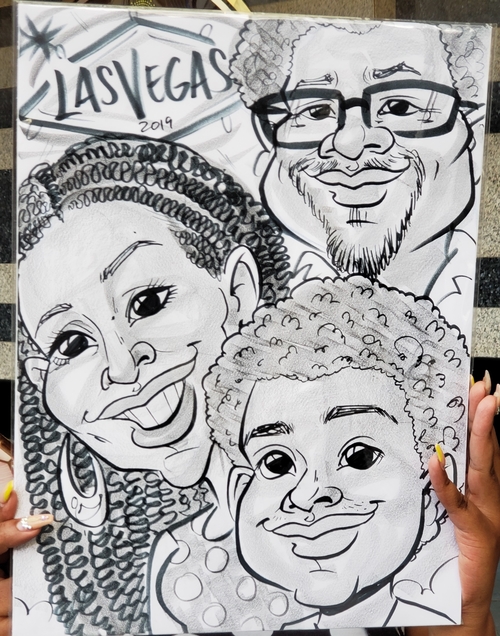 LAS VEGAS
2019